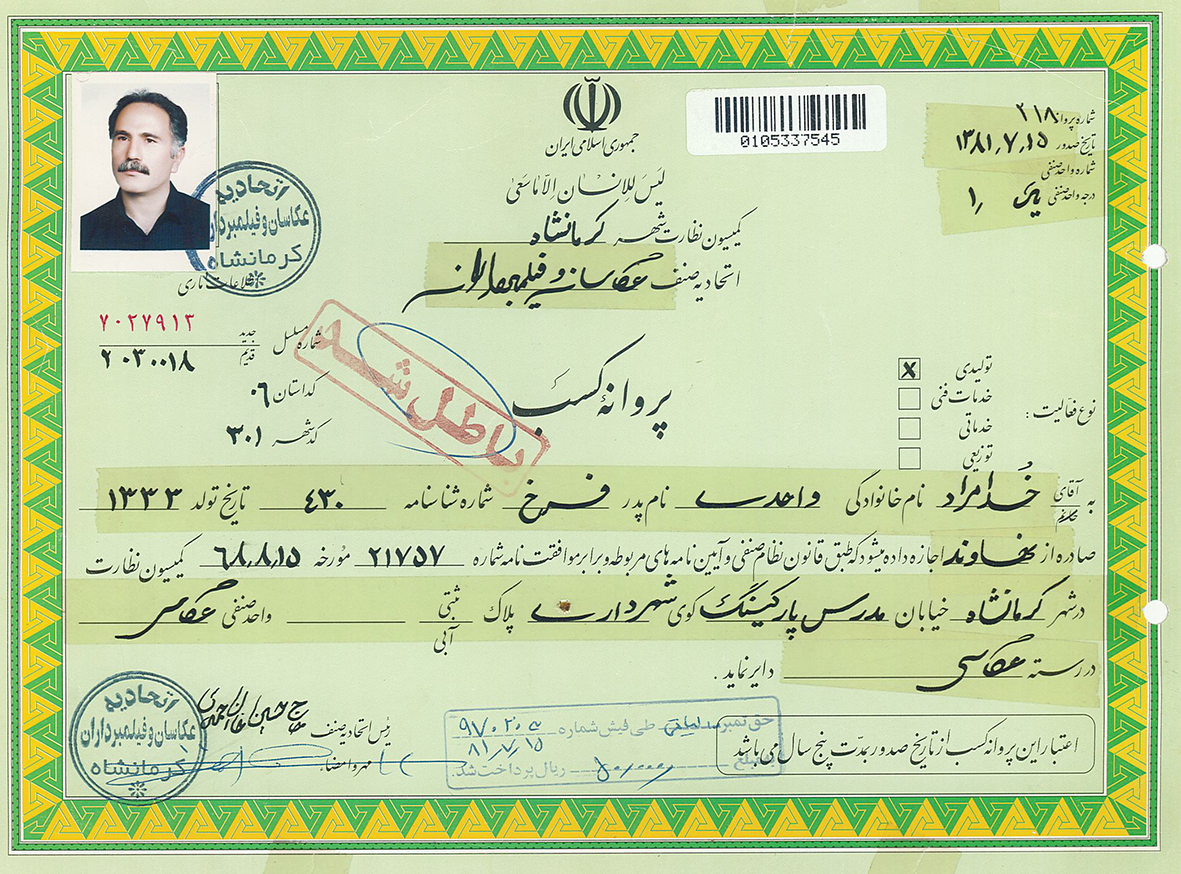 جمهوری اسلامی ایران
لیس للانسان الا ما سعی
0105337545
شماره پروانه ۲۱۸
تاریخ صدور ۱۳۸۱٫۷٫۱۵
شماره واحد صنفی
درجه واحد صنفی یک ۱٫
کمیسیون نظارت شهر کرمانشاه
اتحادیه صنف عکاسان و فیلمبرداران
اتحادیه
عکاسان و فیلمبرداران
کرمانشاه
شماره مسلسل
جدید ۷۰۲۷۹۱۳
قدیم ۲۰۳۰۰۱۸
کد استان ۰۶
کد شهر ۳۰۱
باطل شد
پروانه کسب
نوع فعالیت :
تولیدی x
خدمات فنی
خدماتی
توزیعی
به آقای خدامراد نام خانوادگی واحدی نام پدر فرخ شماره شناسنامه ۴۳۰ تاریخ تولد ۱۳۳۳
صادره از نهاوند اجازه داده میشود که طبق قانون نظام صنفی و آیین نامه های مربوطه و برابر موافقت نامه شماره ۲۱۷۵۷ مورخه ۶۸٫۸٫۱۵ کمیسیون نظارت
در شهر کرمانشاه خیابان مدرس پارکینگ کوی شهرداری پلاک ثبتی آبی واحد صنفی عکاسی
در رسته عکاسی دایر نماید .
اعتبار این پروانه کسب از تاریخ صدور بمدت پنج سال می باشد
حق تمبر طی فیش شماره
۸۱٫۷٫۱۵
مبلغ ریال پرداخت شد.
رئیس اتحادیه صنف
مهر و امضاء
اتحادیه
عکاسان و فیلمبرداران
کرمانشاه